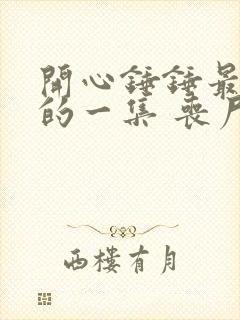 開心錘錘最
的一集 喪尸
西樓有月